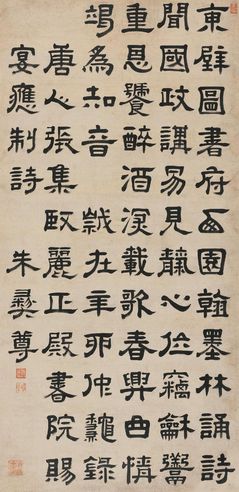 東壁圖書府西園翰墨林誦詩
聞國政講易見靝心位竊龢羹
重恩饕醉酒深載歌春興曲情
竭為知音 歲在辛卯仲龝錄
唐人張集麗正殿書院賜
宴應制詩 朱彝尊